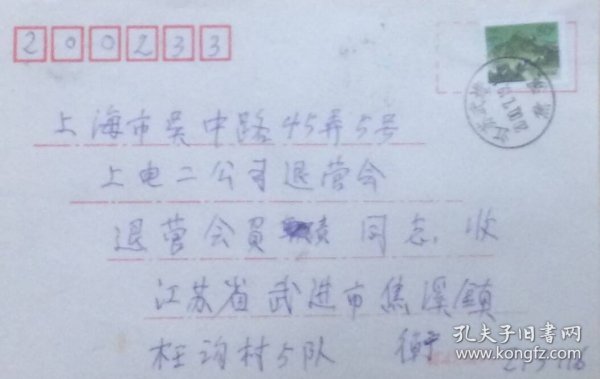 200233
上海市吴中路45弄5号
上电二公司退营会
退营会員 同志 收
江苏省武进市焦溪鎮
村5队
孔夫子旧书网
www.kongfz.com